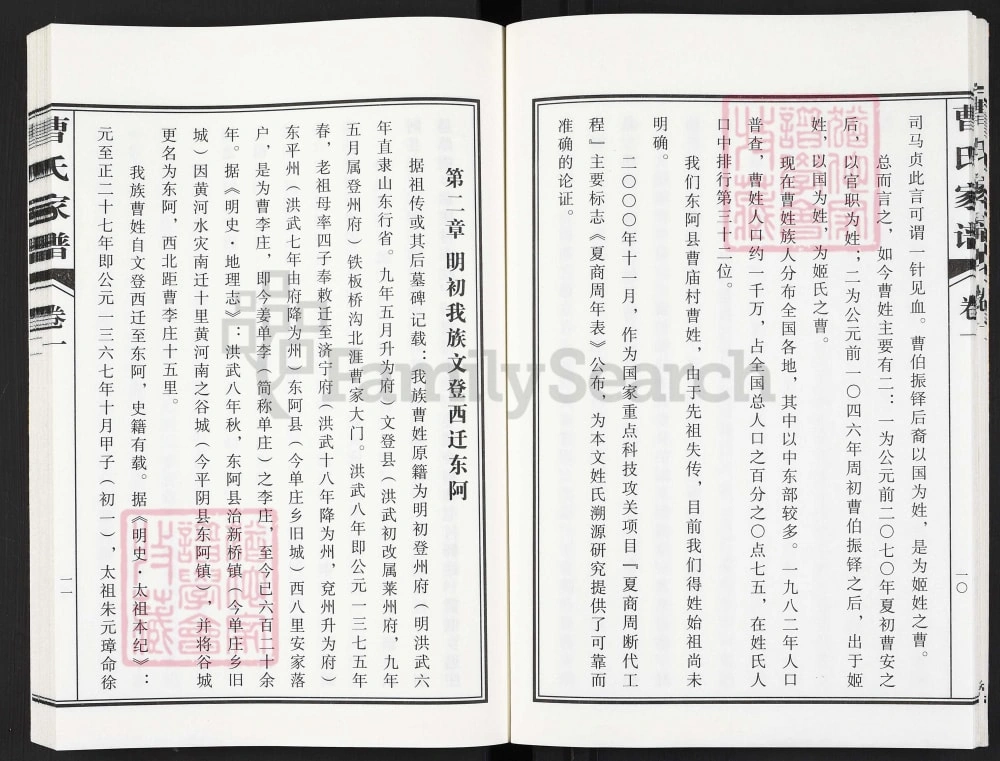 曹氏家谱
卷一
一〇
司马贞此言可谓一针见血。曹伯振铎后裔以国为姓，是为姬姓之曹。
总而言之，如今曹姓主要有二：一为公元前二〇七〇年夏初曹安之
后，以官职为姓；二为公元前一〇四六年周初曹伯振铎之后，出于姬
姓，以国为姓，为姬氏之曹。
现在曹姓族人分布全国各地，其中以中东部较多。一九八二年人口
普查，曹姓人口约一千万，占全国总人口之百分之〇点七五，在姓氏人
口中排行第三十二位。
我们东阿县曹庙村曹姓，由于先祖失传，目前我们得姓始祖尚未
明确。
二〇〇〇年十一月，作为国家重点科技攻关项目『夏商周断代工
程』主要标志《夏商周年表》公布，为本文姓氏溯源研究提供了可靠而
准确的论证。
第二章 明初我族文登西迁东阿
据祖传或其后墓碑记载：我族曹姓原籍为明初登州府（明洪武六
年直隶山东行省。九年五月升为府）文登县（洪武初改属莱州府，九年
五月属登州府）铁板桥沟北涯曹家大门。洪武八年即公元一三七五年
春，老祖母率四子奉敕迁至济宁府（洪武十八年降为州，兖州升为府）
东平州（洪武七年由府降为州）东阿县（今单庄乡旧城）西八里安家落
户，是为曹李庄，即今姜单李（简称单庄）之李庄，至今已六百二十余
年。据《明史·地理志》：洪武八年秋，东阿县治新桥镇（今单庄乡旧
城）因黄河水灾南迁十里黄河南之谷城（今平阴县东阿镇），并将谷城
更名为东阿，西北距曹李庄十五里。
我族曹姓自文登西迁至东阿，史籍有载。据《明史·太祖本纪》：
元至正二十七年即公元一三六七年十月甲子（初一），太祖朱元璋命徐
曹氏家谱
卷一
一一
FamilySearch